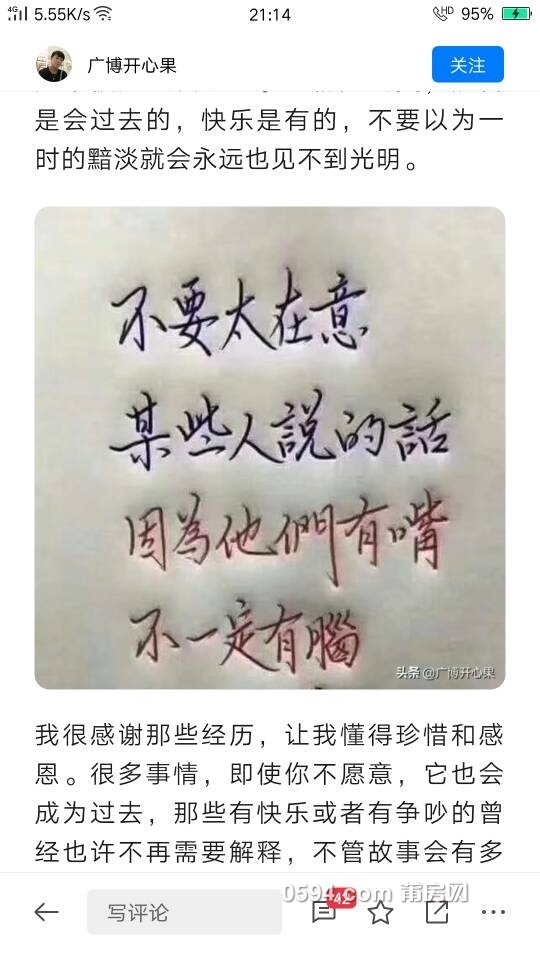 4G 5.55K/s 21:14 HD 95%
广博开心果 关注
是会过去的，快乐是有的，不要以为一
时的黯淡就会永远也见不到光明。
不要太在意
某些人說的話
因為他們有嘴
不一定有腦
头条 @广博开心果
我很感谢那些经历，让我懂得珍惜和感
恩。很多事情，即使你不愿意，它也会
成为过去，那些有快乐或者有争吵的曾
经也许不再需要解释，不管故事会有多
写评论 42
0594.com 莆房网